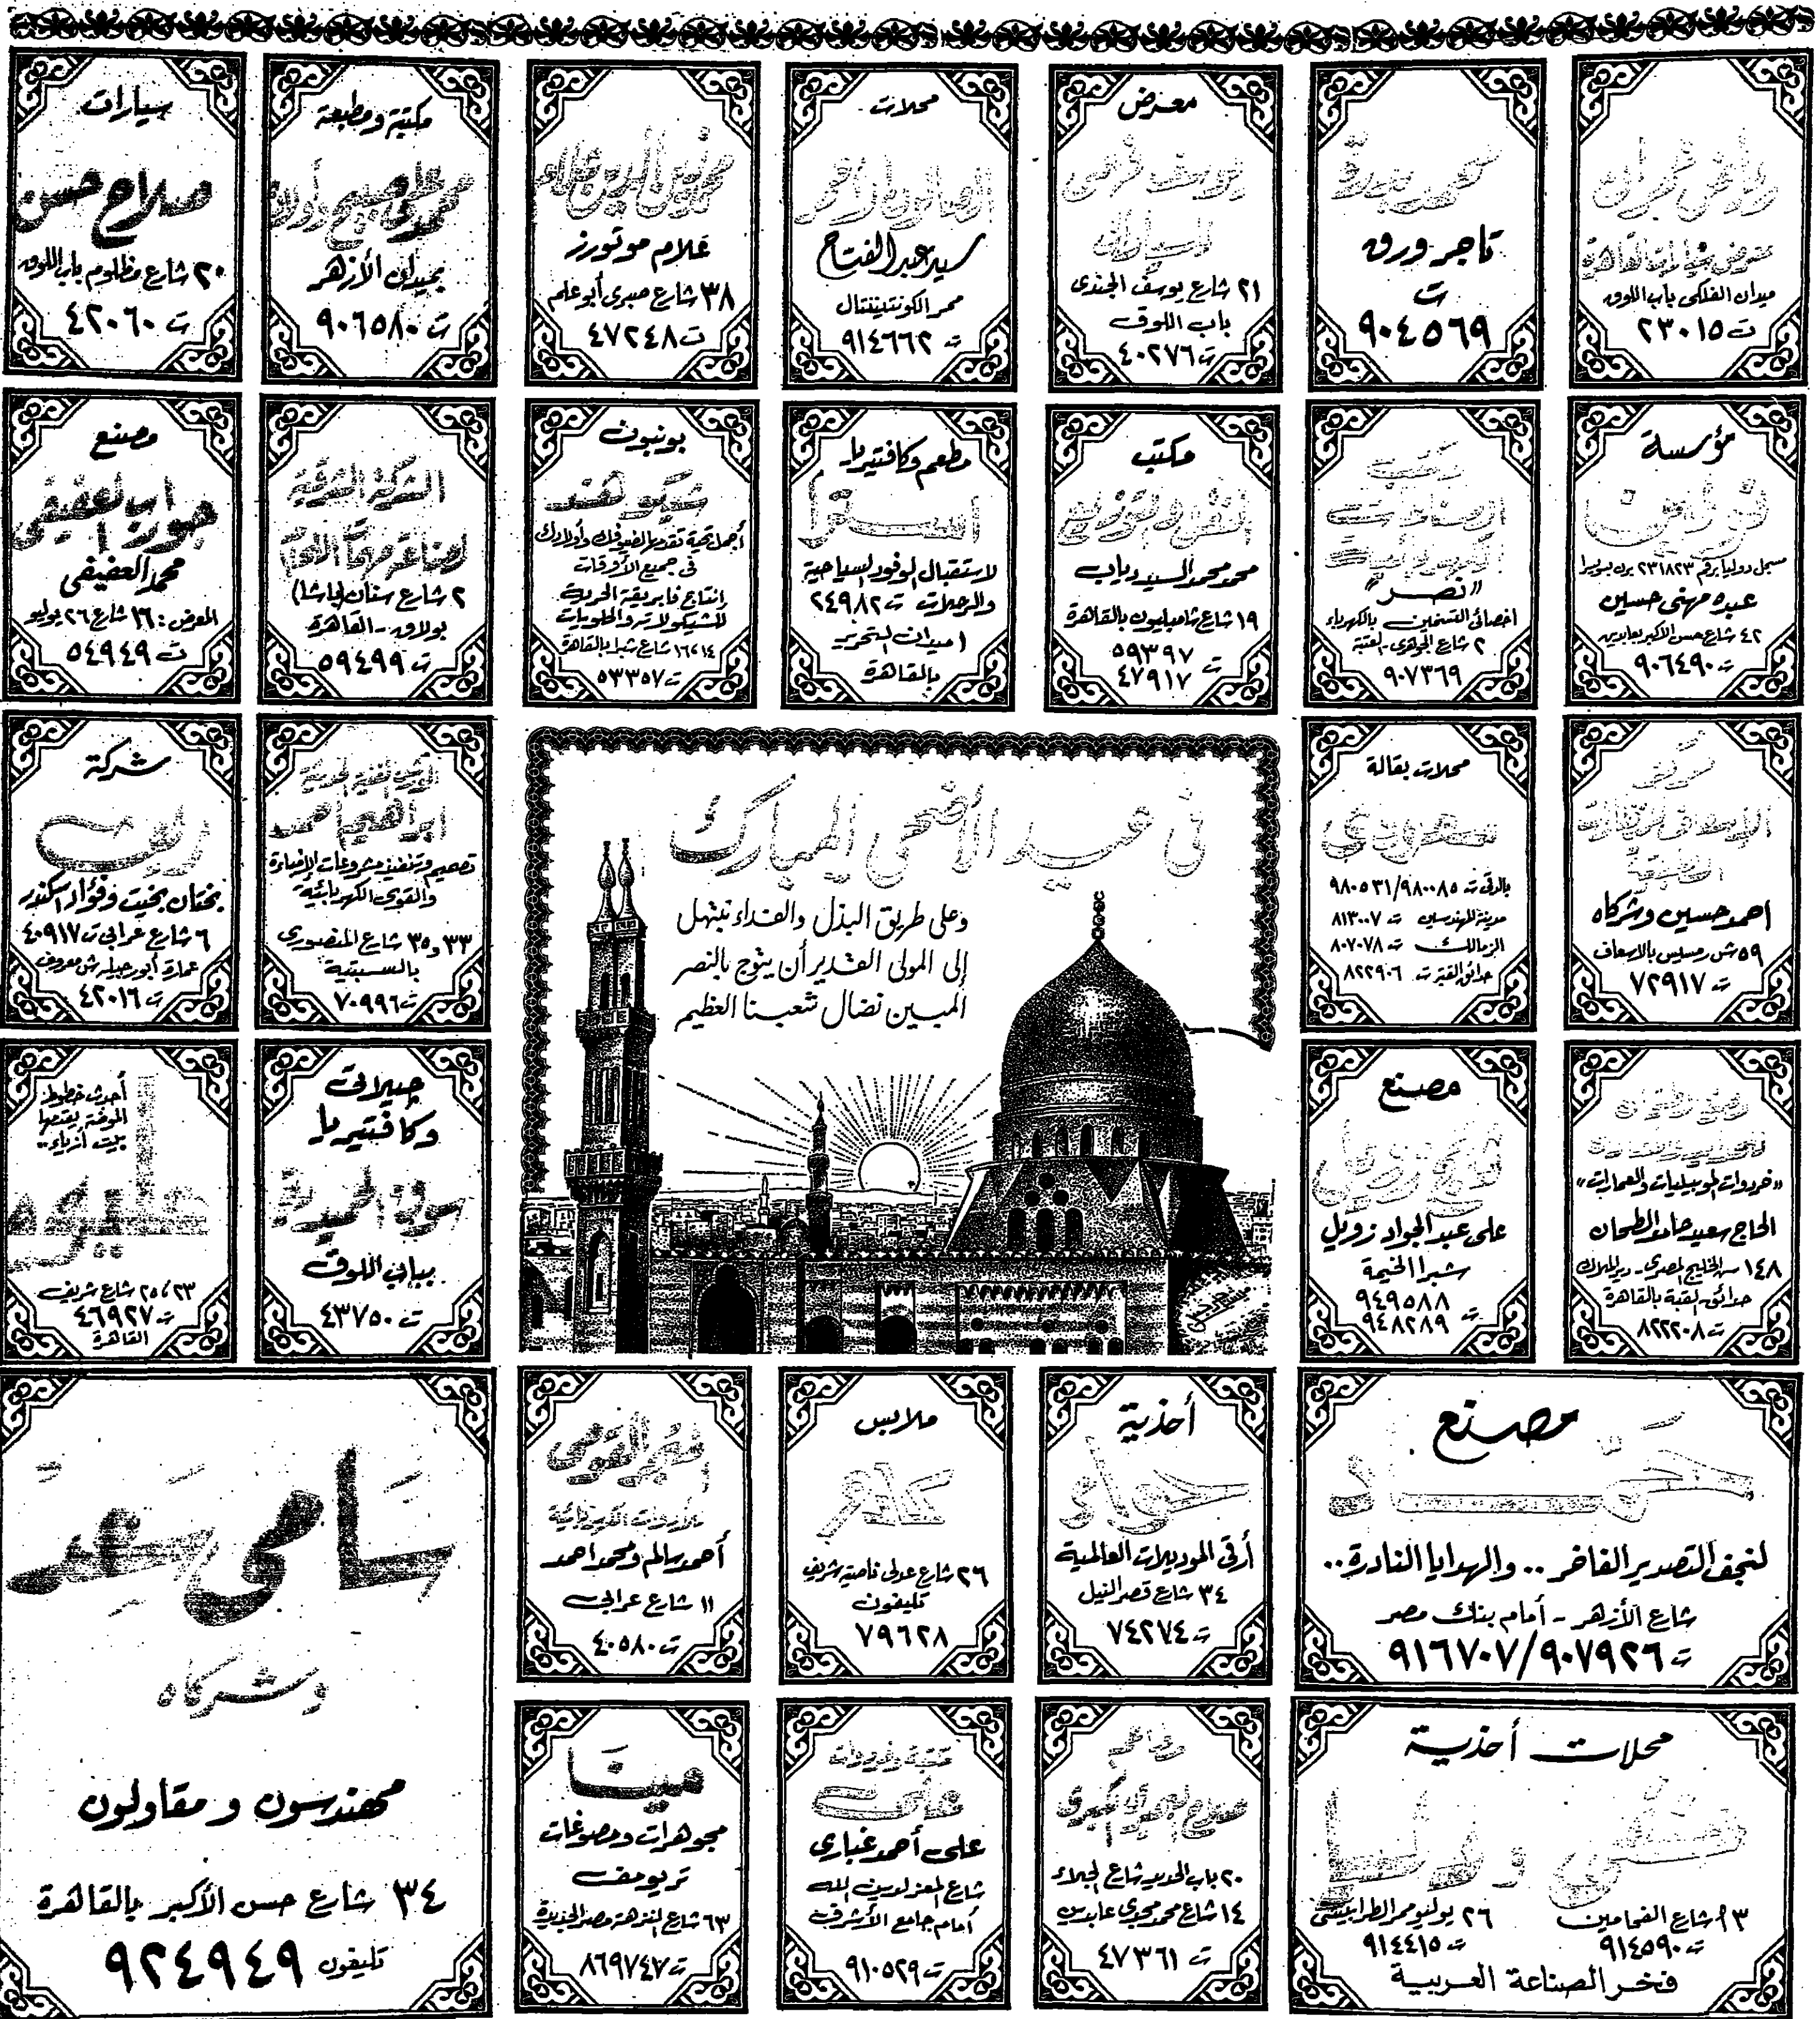 رياض غبريال
معرض سيارات القاهرة
ميدان الفلكى باب اللوق
ت ٢٣٠١٥
محمد بندق
تاجر ورق
ت
٩٠٤٥٦٩
معرض
يوسف فرحى
للسيارات
٢١ شارع يوسف الجندى
باب اللوق
ت ٤٠٢٧٦
محلات
الصالون الأخضر
سيد عبد الفتاح
ممر الكونتيننتال
ت ٩١٤٦٦٢
علام موتورز
٣٨ شارع صبرى أبو علم
ت ٤٧٢٤٨
مكتبة ومطبعة
محمد على صبيح وأولاده
بميدان الأزهر
ت ٩٠٦٥٨٠
سيارات
صلاح حسن
٢٠ شارع مظلوم باب اللوق
ت ٤٢٠٦٠
مؤسسة
مسجل دوليا برقم ٢٣١٨٢٣
عبده مهنى حسين
٤٢ شارع حسن الأكبر بعابدين
ت ٩٠٦٤٩٠
مكتب
الصناعات
الكهربائية
"نصر"
اخصائى التسخين بالكهرباء
٢ شارع الجوهرى العتبة
ت ٩٠٧٣٦٩
مكتب
النشر والتوزيع
محمد محمد السيد دياب
١٩ شارع شامبليون بالقاهرة
ت ٥٩٣٩٧
٤٧٩١٧
مطعم وكافتيريا
استرا
لاستقبال الوفود السياحية
والرحلات ت ٢٤٩٨٢
١ ميدان التحرير
بالقاهرة
بونبون
شيكو هند
أجمل تحية تقدمها لضيوفك وأولادك
فى جميع الأوقات
إنتاج فابريقة الحرية
للشيكولاته والحلويات
١٤، ١٦ شارع شبرا بالقاهرة
ت ٥٣٣٥٧
الشركة الشرقية
لصناعة مهمات اللحام
٢ شارع سنان (باشا)
بولاق - القاهرة
ت ٥٩٤٩٩
مصنع
جوارب العفيفى
محمد العفيفى
المعرض: ١٦ شارع ٢٦ يوليو
ت ٥٤٩٤٩
شركة
احمد حسين وشركاه
٥٩ ش رمسيس بالاسعاف
ت ٧٢٩١٧
محلات بقالة
سعودى
بالدقى ت ٩٨٠٥٣١/٩٨٠٠٨٥
مدينة المهندسين ت ٨١٣٠٠٧
الزمالك ت ٨٠٧٠٧٨
حدائق القبة ت ٨٢٢٩٠٦
فى عيد الأضحى المبارك
وعلى طريق البذل والفداء نبتهل
إلى المولى القدير أن يتوج بالنصر
المبين نضال شعبنا العظيم
الورش الفنية الحديثة
ابراهيم احمد
تصميم وتنفيذ مشروعات الإضاءة
والقوى الكهربائية
٣٣ و ٣٥ شارع المنصورى
بالسبتية
ت ٧٠٩٩٦
شركة
زينب
بختان بخيت وفؤاد اسكندر
٦ شارع عرابى ت ٤٠٩١٧
عمارة أبو رجيله ش معروف
ت ٤٢٠١٦
"خردوات الموبيليات والعمارات"
الحاج سعيد حامد الطحان
١٤٨ ش الخليج المصرى - دير الملاك
حدائق القبة بالقاهرة
ت ٨٢٢٢٠٨
مصنع
على عبد الجواد زويل
شبرا الخيمة
ت ٩٤٩٥٨٨
٩٤٨٢٨٩
جيلاتى
وكافتيريا
سوق الحميدية
بباب اللوق
ت ٤٣٧٥٠
أحدث خطوط
الموضة يقدمها
بيت أزياء..
٢٣، ٢٥ شارع شريف
ت ٤٦٩٢٧
القاهرة
مصنع
حمّاد
لنجف التصدير الفاخر .. والهدايا النادرة ..
شارع الأزهر - أمام بنك مصر
ت ٩١٦٧٠٧/٩٠٧٩٢٦
أحذية
حواء
أرقى الموديلات العالمية
٣٤ شارع قصر النيل
ت ٧٤٢٧٤
ملابس
٢٦ شارع عدلى ناصية شريف
تليفون
٧٩٦٢٨
للأدوات الكهربائية
أحمد سالم ومحمد احمد
١١ شارع عرابى
ت ٤٠٥٨٠
سامى سعد
وشركاه
مهندسون ومقاولون
٣٤ شارع حسن الأكبر بالقاهرة
تليفون ٩٢٤٩٤٩
محلات أحذية
٣٩ شارع الفحامين
ت ٩١٤٥٩٠
٢٦ يوليو ممر الطرابيشى
ت ٩١٤٤١٥
فخر الصناعة العربية
٢٠ باب الحديد شارع الجلاء
١٤ شارع محمد مجدى عابدين
ت ٤٧٣٦١
على أحمد غبارى
شارع المعز لدين الله
أمام جامع الأشرف
ت ٩١٠٥٢٩
مينا
مجوهرات ومصوغات
تريومف
٦٣ شارع النزهة مصر الجديدة
ت ٨٦٩٧٤٧